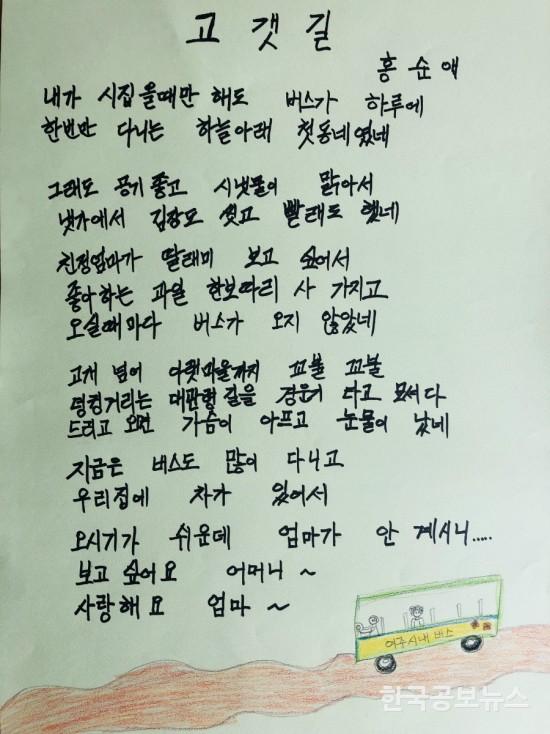 고 갯 길
홍 순 애
내가 시집올때만 해도 버스가 하루에
한번만 다니는 하늘아래 첫동네였네
그래도 공기 좋고 시냇물이 맑아서
냇가에서 김장도 씻고 빨래도 했네
친정엄마가 딸래미 보고 싶어서
좋아하는 과일 한보따리 사 가지고
오실때마다 버스가 오지 않았네
고개 넘어 아랫마을까지 꼬불 꼬불
덩컹거리는 대관령길을 경운기 타고 모셔다
드리고 오면 가슴이 아프고 눈물이 났네
지금은 버스도 많이 다니고
우리집에 차가 있어서
오시기가 쉬운데 엄마가 안 계시니.....
보고 싶어요 어머니 ~
사랑해요 엄마 ~
여주시내버스
한국공보뉴스